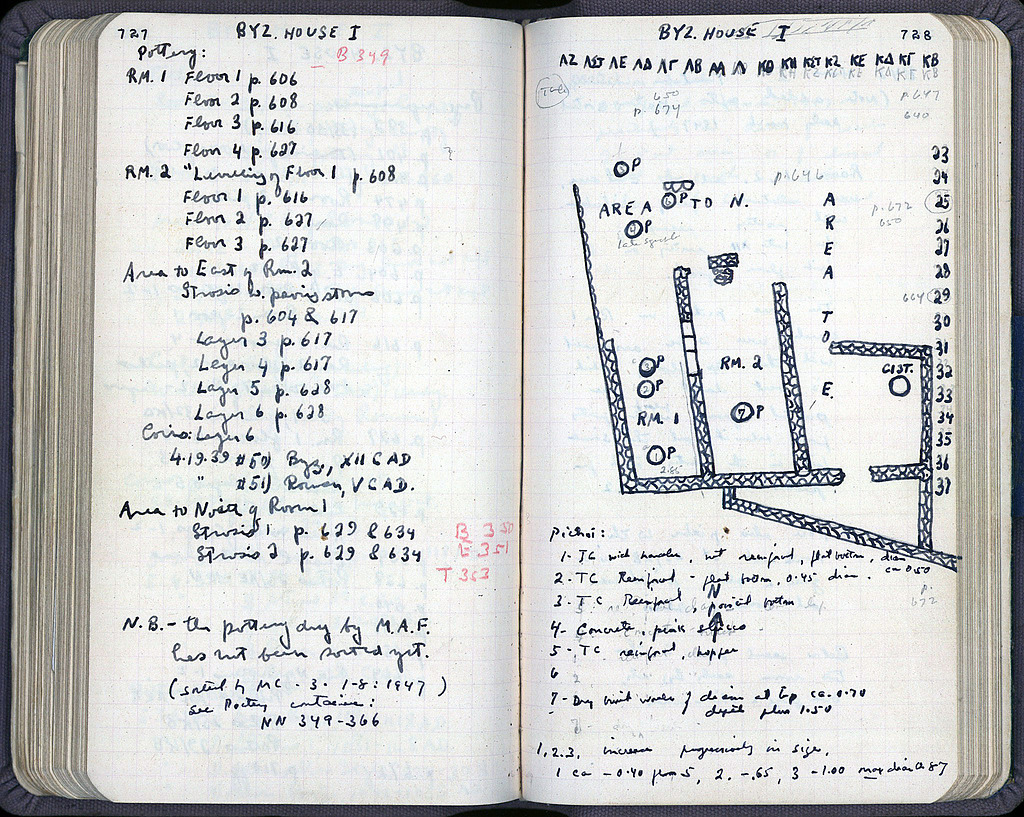 727 BYZ. HOUSE I
Pottery: B 349
RM. 1 Floor 1 p. 606
Floor 2 p. 608
Floor 3 p. 616
Floor 4 p. 627
?
RM. 2 "Leveling of Floor 1 p. 608
Floor 1 p. 616
Floor 2 p. 627
Floor 3 p. 627
Area to East of Rm. 2
Strosis w. paving stones
p. 604 & 617
Layer 3 p. 617
Layer 4 p. 617
Layer 5 p. 628
Layer 6 p. 628
Coins: Layer 6
4.19.39 #50) Byz, XII C AD
" #51) Roman, V C AD.
Area to North of Room 1
Strosis 1 p. 629 & 634 B 350
Strosis 2 p. 629 & 634 E 351
T 353
N.B. - the pottery dug by M.A.F.
has not been sorted yet.
(sorted by MC - 3. 1-8: 1947)
see Pottery containers:
NN 349-366
BYZ. HOUSE I 728
ΛΖ ΛΣΤ ΛΕ ΛΔ ΛΓ ΛΒ ΛΑ Λ ΚΘ ΚΗ ΚΣΤ ΚΖ ΚΕ ΚΔ ΚΓ ΚΒ
650
p. 674
p. 647
640
23
P
p. 646
24
AREA 6 P TO N.
p. 672
650
25
4 P
26
27
28
29
30
AREA TO E.
31
3 P
RM. 2
CIST.
32
2 P
33
RM. 1
7 P
34
35
1 P
36
37
Pithoi:
1- TC with handles, not reinforced, flat bottom, diam. ca 0.50
2- TC Reinforced - flat bottom, 0.45 diam.
3- TC Reinforced, pointed bottom
p. 672
4- Concrete, pink
5- TC reinforced, hopper
6
7- Dry built walls of diam at top ca. 0.70
depth plus 1.50
1, 2, 3, increase progressively in size,
1 ca -0.40 from 5, 2. -.65, 3 -1.00 max diam 0.87